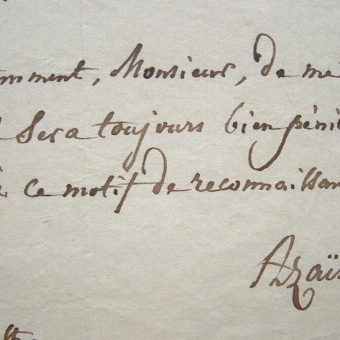 mment, Monsieur, de me
sera toujours bien péni
ce motif de reconnaissan
Azaïs